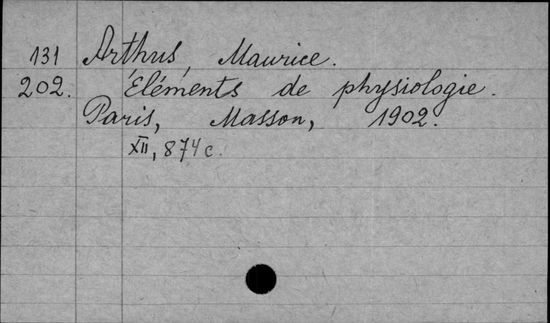 131 Arthus, Maurice.
202. Éléments de physiologie.
Paris, Masson, 1902.
XII, 874 c.